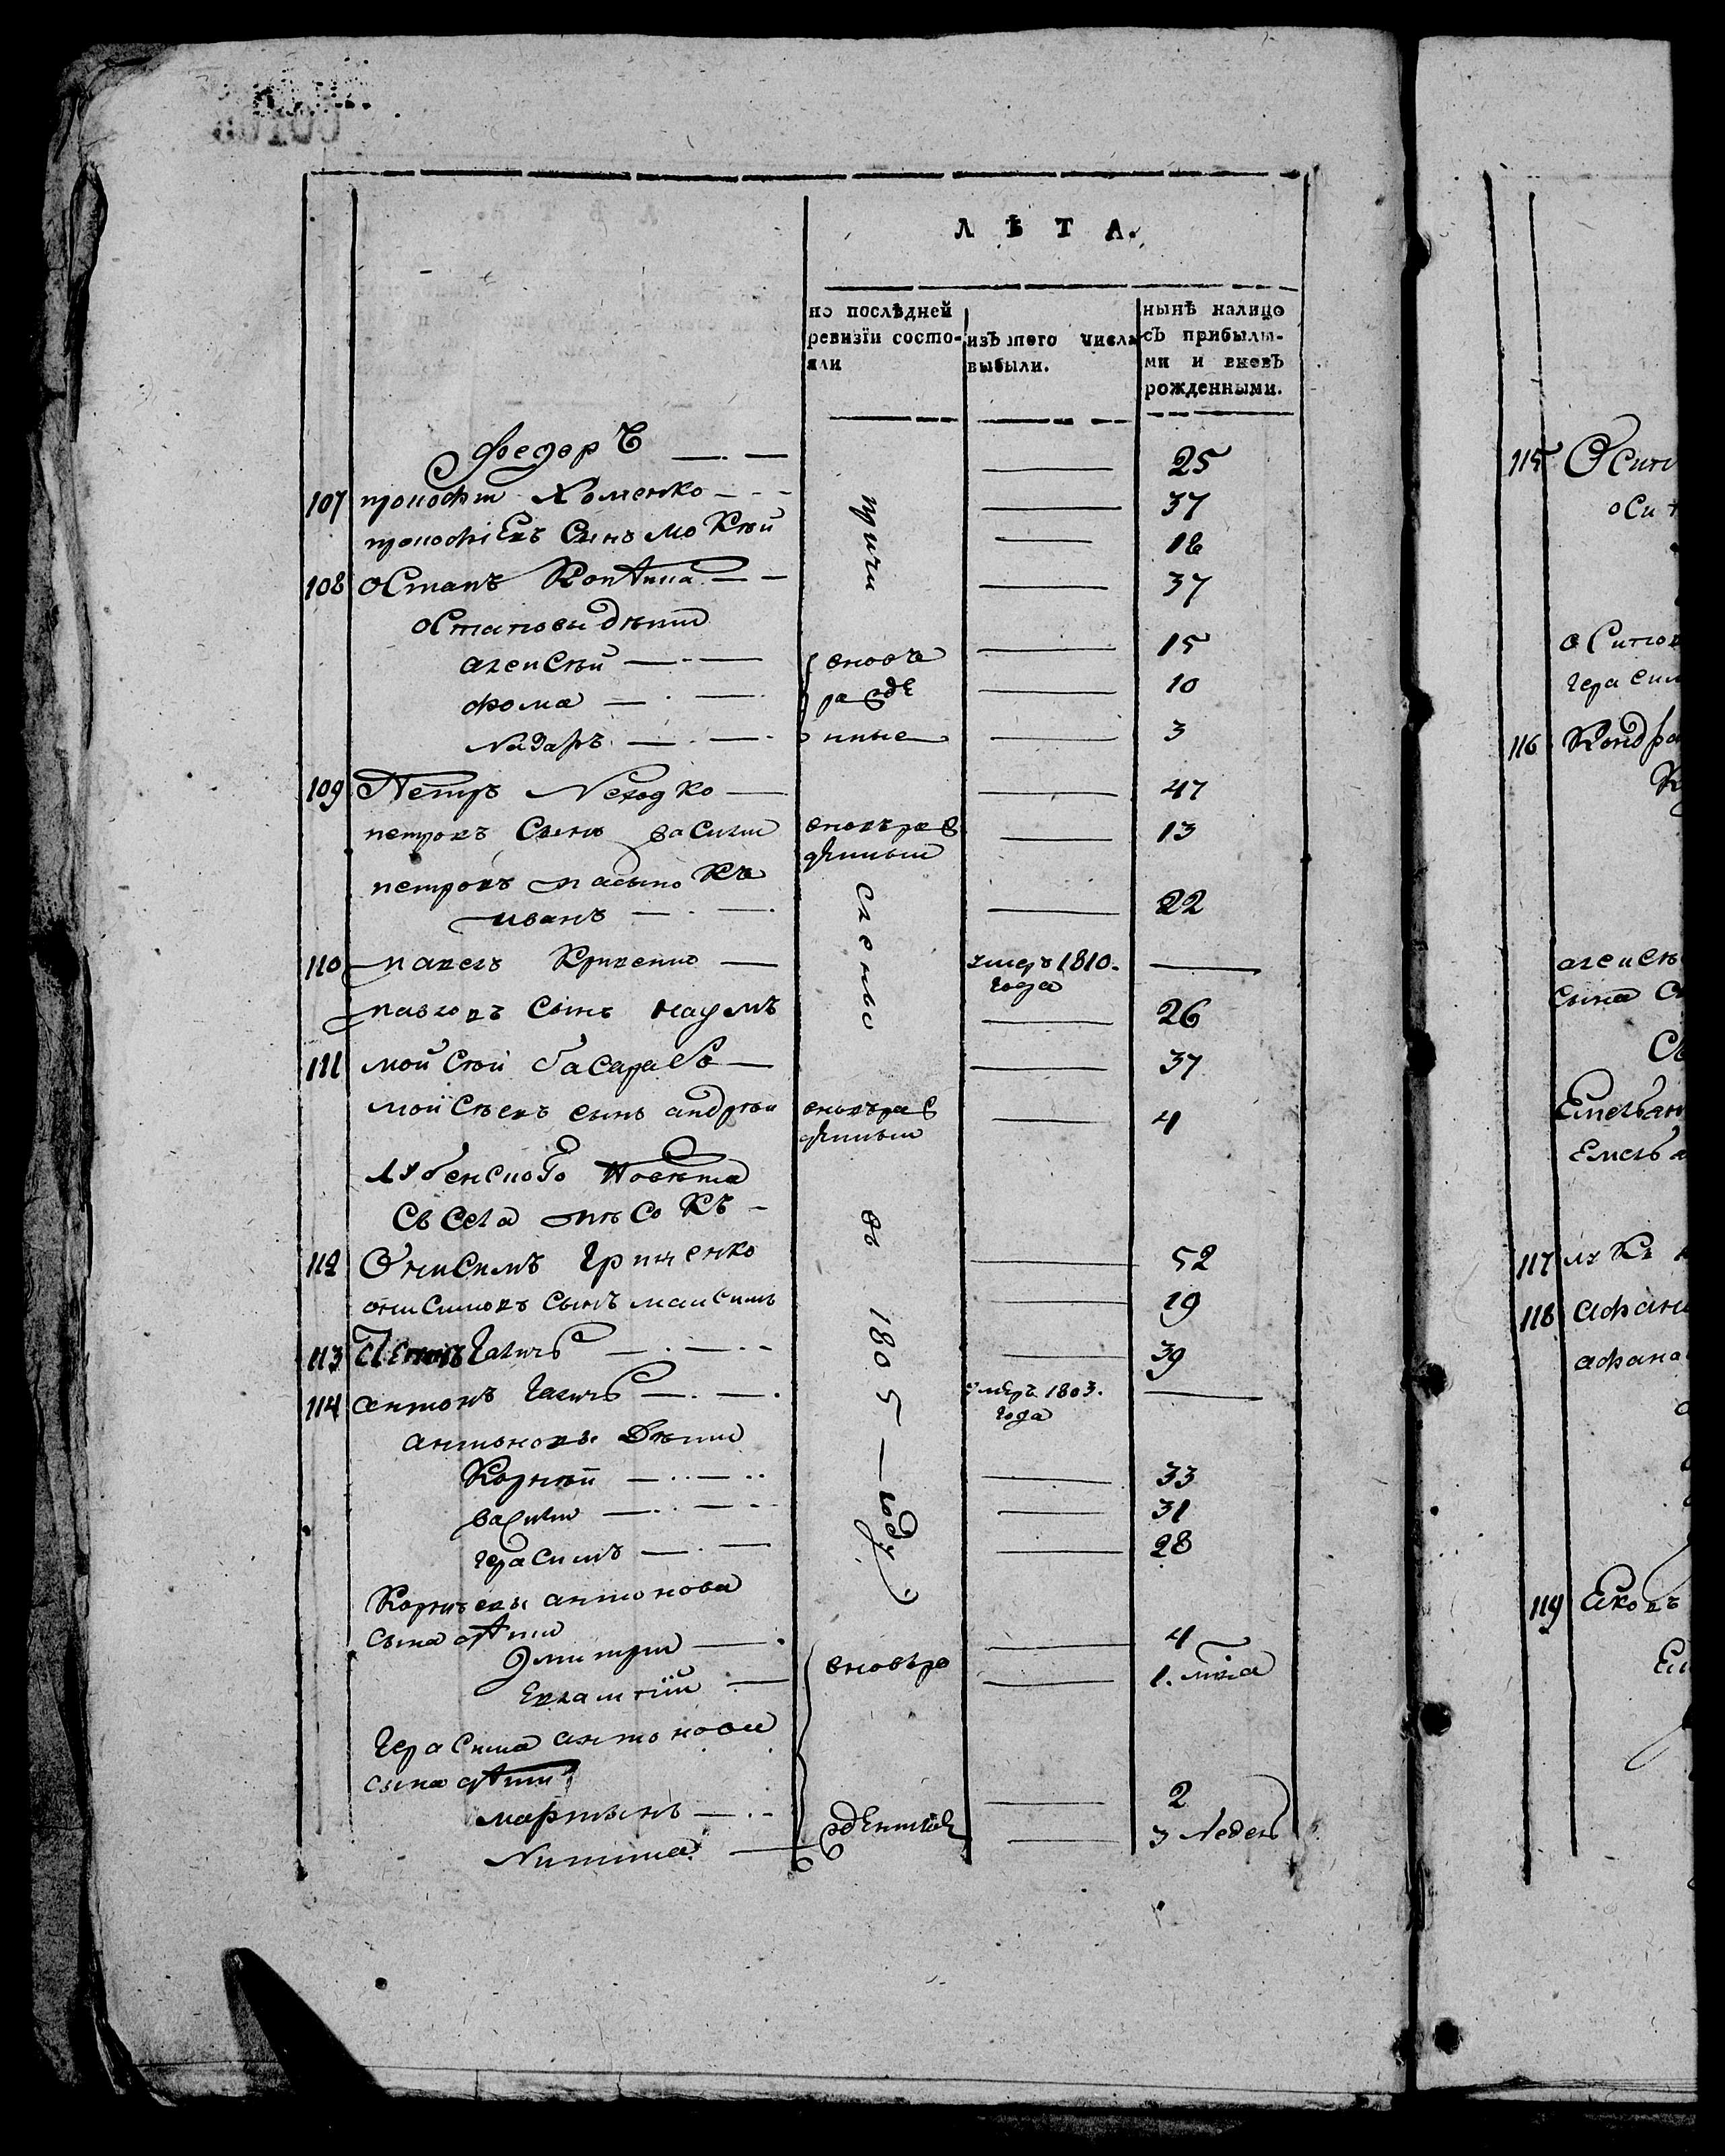 ЛѢТА.
по послѣдней ревизїи состо-яли
изъ того числа выбыли.
нынѣ налицо съ прибылы-ми и вновь рожденными.
Федоръ 25
107 прокофи Хоменко 37
прокофіевъ Сынъ моКѣй 18
108 остапъ 37
остаповы дѣти
алеиСѣй вновъ 15
фома ражде 10
Назаръ нные 3
109 Петръ Неходко 47
петровъ Сынъ ваСили вновъраж 13
денный
петровъ пасыноКъ
иванъ 22
110 павелъ Кривенко умеръ 1810. года
павловъ Сынъ наумъ 26
111 мойСѣй басарабъ 37
мойСѣевъ сынъ андрѣи вновъраж 4
денный
лубенского Повѣта
Съ Села пѣСоКъ
112 ониСимъ Гриценко 52
онисимовъ Сынъ макСимъ 19
113 Галичъ 39
114 антонъ Галичъ умеръ 1803. года
антоновы Дѣти
Корнѣй 33
василий 31
гераСимъ 28
Корнѣевы антонова
сына дѣти
Дмитрий 4
Евлампий вновъро 1. мѣца
гераСима антонова
сына дѣти
мартынъ 2
Никита жденные 3 Недель
причи
слено
въ
1805
году
115
116 Кондра
алеиСѣ
сына
Емельян
Емелья
117 луКа
118 афана
афана
119 Яковъ